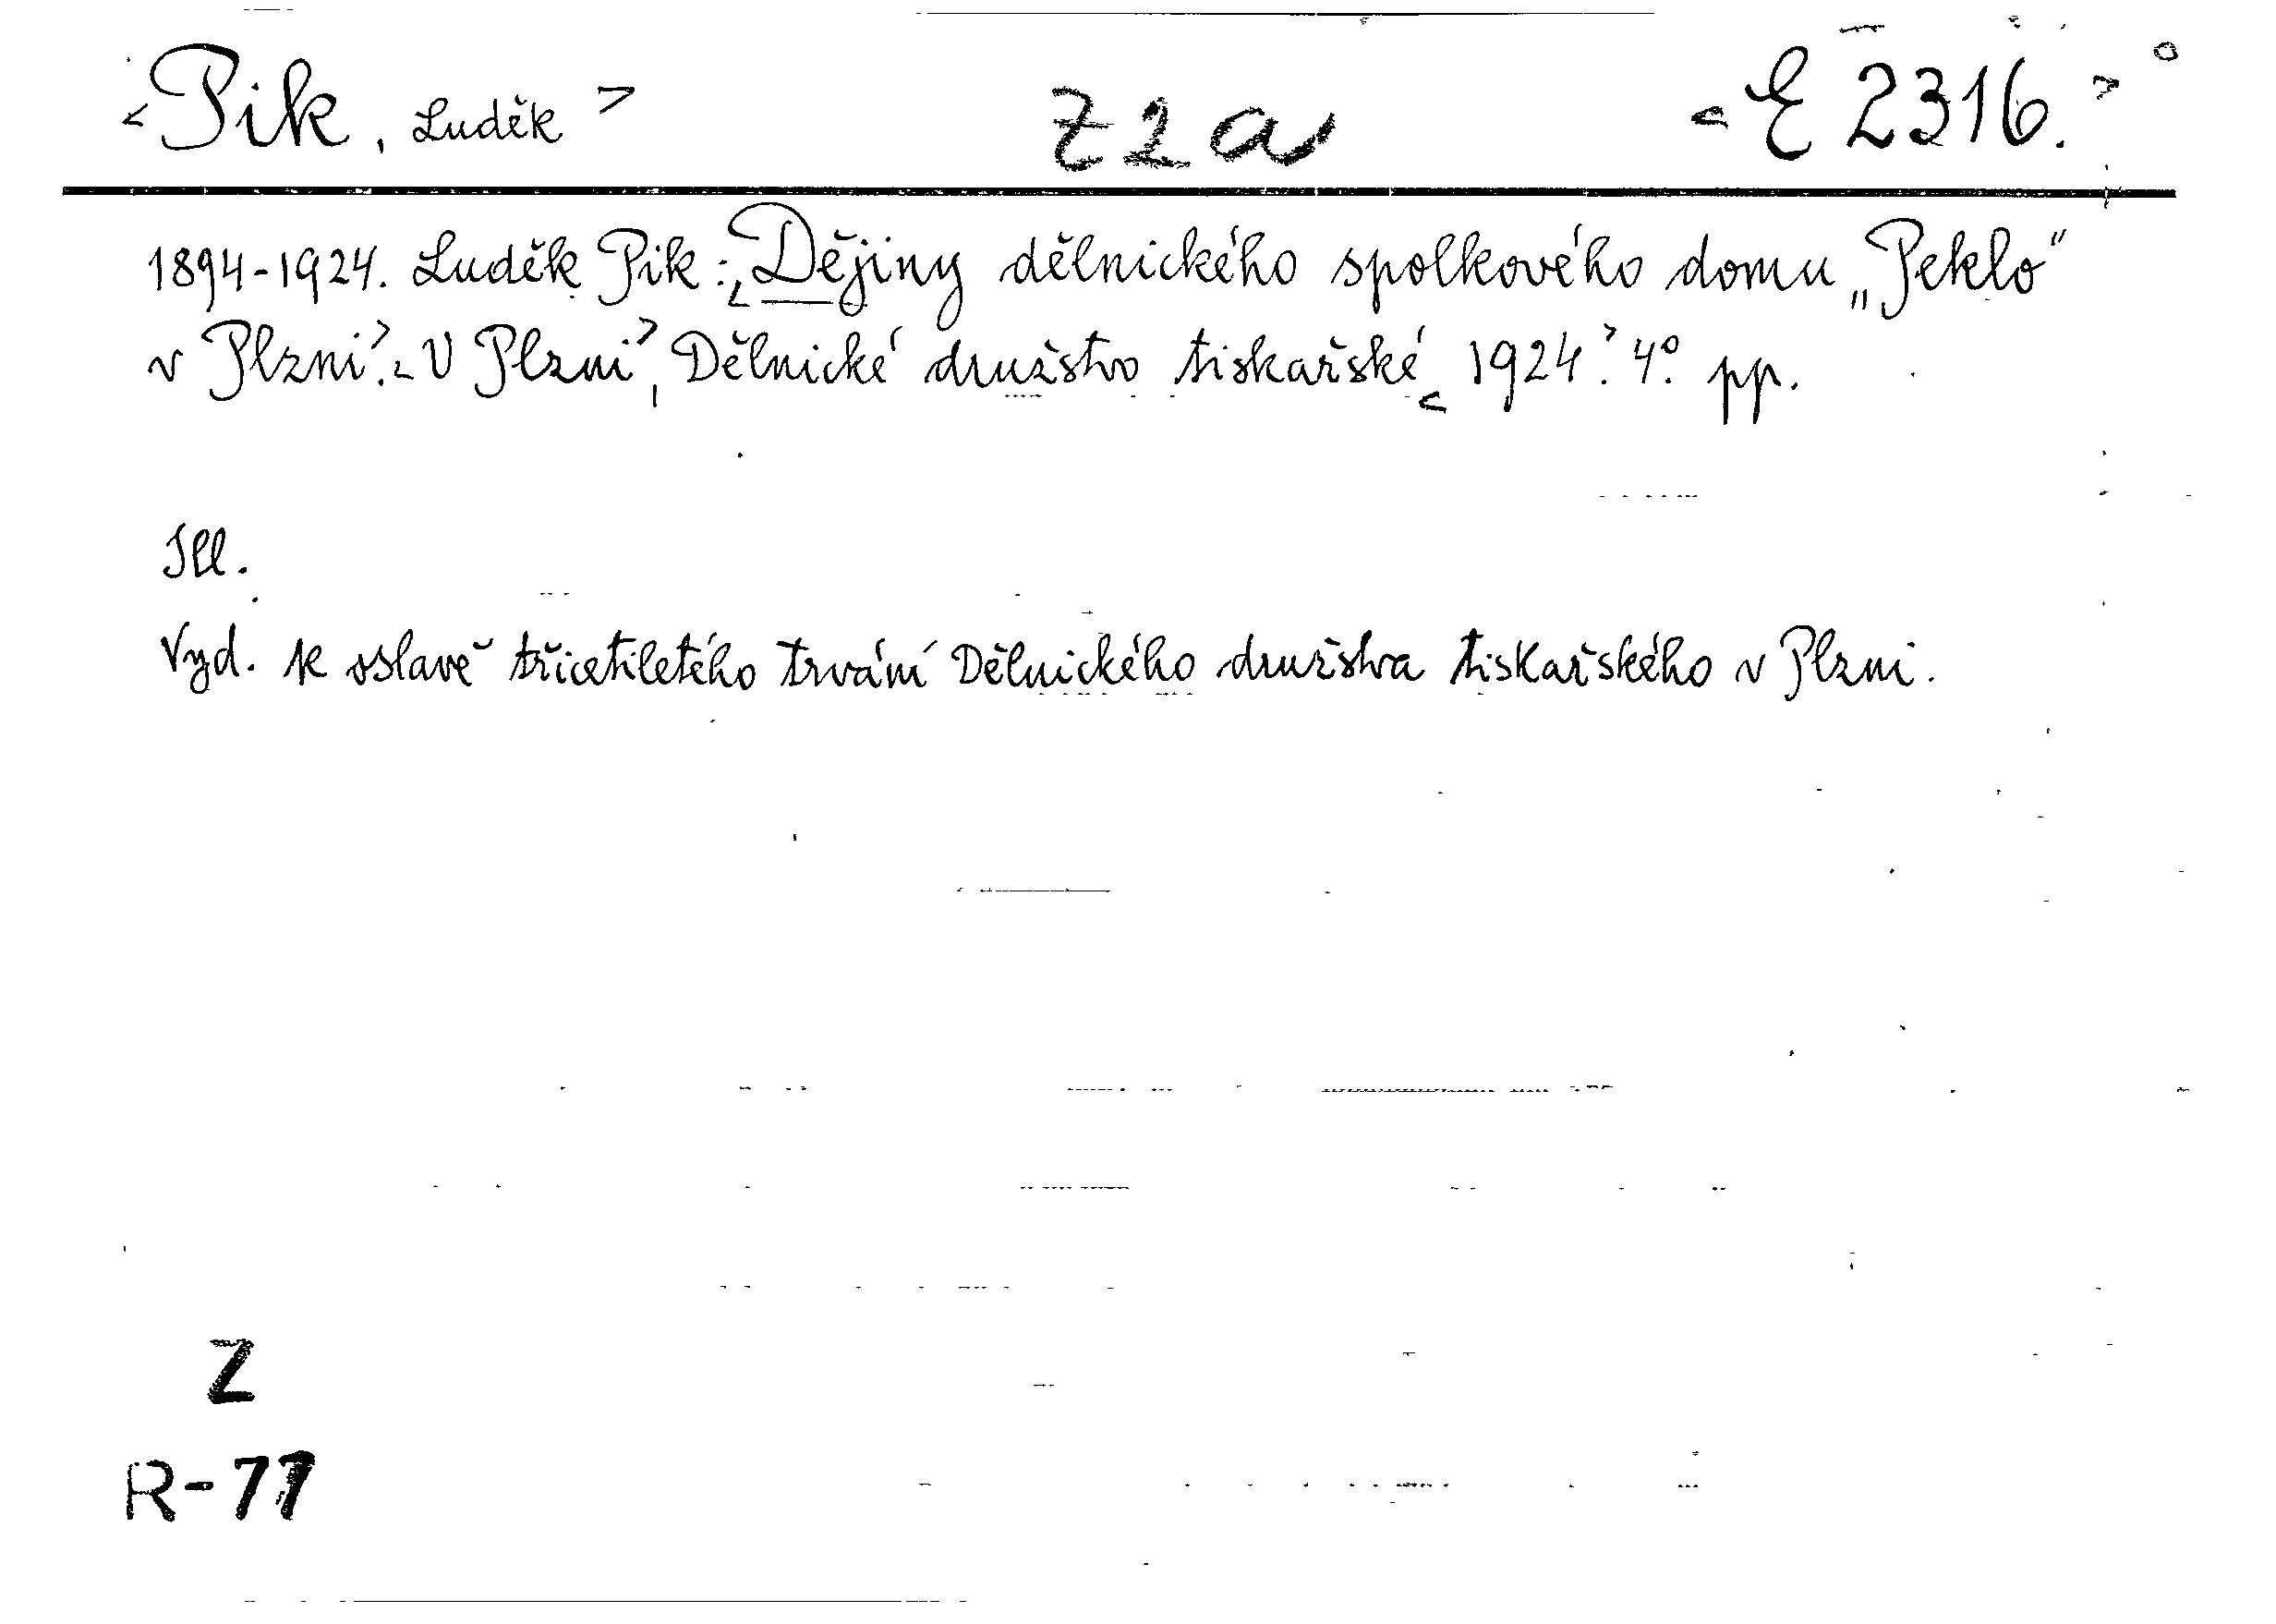 <Pik, Luděk> Z 2 a <E 2316.>
1894-1924. Luděk Pik: <Dějiny dělnického spolkového domu „Peklo“
v Plzni>. <V Plzni>, Dělnické družstvo tiskařské <1924>. 4°. pp.
Ill.
Vyd. k oslavě třicetiletého trvání Dělnického družstva tiskařského v Plzni.
Z
R-77